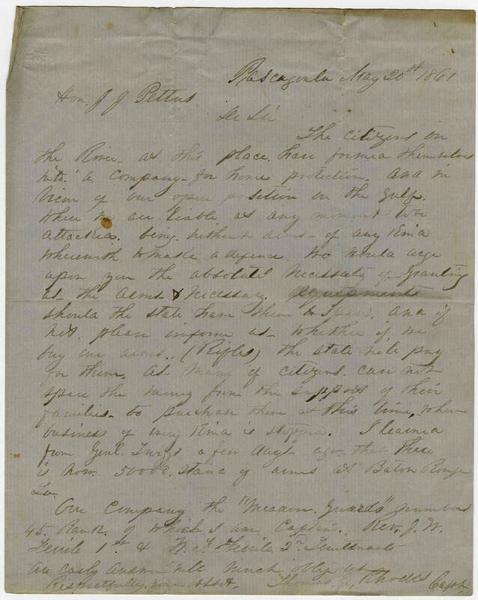 Pascagoula May 20th 1861
Hon. J J Pettus
De Sir
The Citizens on
the River at this place have formed themselves
into a Company for home protection. And in
view of our open position on the Gulf
when we are liable at any moment to be
attacked. being without arms of any Kind
wherewith to make a defence. We would urge
upon you the absolute necessity of granting
us the arms & necessary equipments
should the state have them to spare. and if
not please inform us whether if we
buy our arms (Rifles) the state will pay
for them. As many of citizens can not
spare the money from the support of their
families to purchase them at this time, when
business of every Kind is stopped. I learned
from Genl. Twiggs a few days ago that there
is now 50000 stand of arms at Baton Rouge
La.
Our Company the Guards" numbers
45. Rank. of which I am Captain. Rev. J. W.
1st & W. J. 2d Lieutenants
An early answer will much oblige us
Respectfully your obt st. Thomas Rhodes Capt.